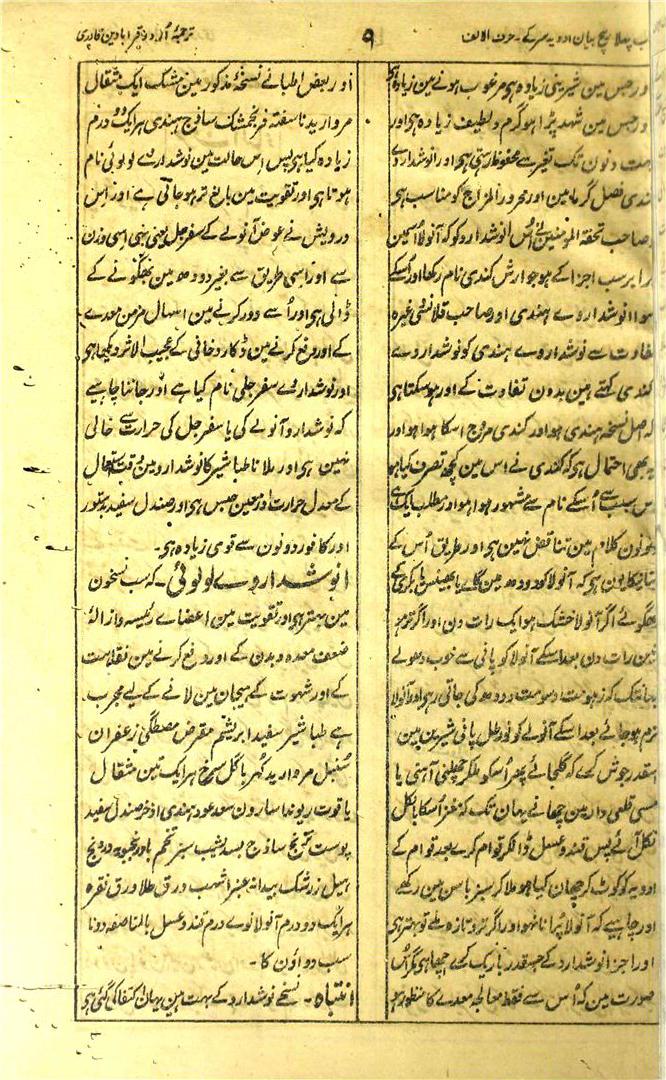 ب پہلا بیچ بیان ادویہ سر کے۔ حرف الالف
۹
ترجمۂ اُردو قرابادین قادری
ور جس مین شیرینی زیادہ ہی مرغوب ہونے مین زیادہ ہی
ور جس مین شہد پڑا ہو گرم و لطیف زیادہ ہی اور
مدت دنون تک تغیر سے محفوظ رہتی ہی اور انوشداروے
ندی فصل گرما مین اور محرور المزاج کو مناسب ہی
صاحب تحفۃ المومنین نے اُس انوشدارو کو کہ آنولا اسمین
را برسب اجزا کے ہو جوارش کندی نام رکھا اور اُسکے
سوا انوشداروے ہندی اور صاحب قلانسی وغیرہ
تفاوت سے نوشداروے ہندی کو نوشداروے
کندی کہتے ہین بدون تفاوت کے اور ہوسکتا ہی
کہ اصل نسخہ ہندی ہو اور کندی مروج اسکا ہوا ہو اور
یہ بھی احتمال ہی کہ کندی نے اس مین کچھ تصرف کیا ہو
اس سبب سے اُسکے نام سے مشہور ہوا ہو اور مطلب ایک ہی
دونون کلام مین تناقض نہین ہی اور طریق اُس کے
بنانیکا یون ہی کہ آنولا کو دودھ مین گاے یا بھینس یا بکری کے
بھگوئے اگر آنولا خشک ہو ایک رات دن اور اگر تر ہو
تین رات دن بعد اسکے آنولا کو پانی سے خوب دھوئے
یہانتک کہ زہومت و دسومت دودھ کی جاتی رہی اور آنولا
نرم ہو جائے بعد اسکے آنولے کو نو رطل پانی شیرین مین
اسقدر جوش کرے کہ گلجائے پھر اُسکو ملکر چھلنی آہنی یا
مسی قلعی دار مین چھانے یہان تک کہ مغز اُسکا بالکل
نکل آئے پس قند و عسل ڈالکر قوام کرے بعد قوام کے
ادویہ کو کوٹ کر چھان کیا ہو ملا کر سبز باسن مین رکھے
اور چاہیے کہ آنولا پرانا نہو اور اگر تر و تازہ ملے تو بہتر ہی
اور اجزا نوشدارو کے جسقدر باریک کرے اچھا ہی مگر اُس
صورت مین کہ اُس سے فقط معالجہ معدے کا منظور ہو
اور بعض اطبا نے نسخۂ مذکور مین مشک ایک مثقال
مروارید ناسفتہ فرنجمشک ساذج ہندی ہر ایک دو درم
زیادہ کیا ہی پس اس حالت مین نوشداروے لولوئی نام
ہوتا ہی اور تقویت مین بالغ تر ہو جاتی ہے اور اس
درویش نے عوض آنولے کے سفرجل یعنی بہی اسی وزن
سے اور اسی طریق سے بغیر دودھ مین بھگونے کے
ڈالی ہی اور اُسے دور کرنے مین اسہال مزمن معدے
کے اور رفع کرنے مین ڈکار دخانی کے عجیب الاثر دیکھا ہی
اور نوشداروے سفرجلی نام کیا ہے اور جاننا چاہیے
کہ نوشدارو آنولے کی یا سفرجل کی حرارت سے خالی
نہین ہی اور ملانا طباشیر کا نوشدارو مین وقت استعمال
کے معدل حرارت اور معین حبس ہی اور صندل سفید بدستور
اور کافور دونون سے قوی زیادہ ہی۔
انوشداروے لولوئی۔ کہ سب نسخون
مین بہتر ہی اور تقویت مین اعضاے رئیسہ و ازالۂ
ضعف معدہ و بدن کے اور دفع کرنے مین نقاہت
کے اور شہوت کے ہیجان مین لانے کے لیے مجرب
ہے طباشیر سفید ابریشم مقرض مصطگی زعفران
سنبل مروارید کہربا گل سرخ ہر ایک تین مثقال
یاقوت ریوند اسارون سعد عود ہندی اذخر صندل سفید
پوست ترنج ساذج بسد یشب سبز تخم بادرنجبویہ درونج
ہیل زرشک بیدانہ عنبر اشہب ورق طلا ورق نقرہ
ہر ایک دو درم آنولا نوے درم قند و عسل بالمناصفہ دونا
سب دواؤن کا۔
انتباہ۔ نسخے نوشدارو کے بہت ہین یہان اکتفا کی گئی ہی